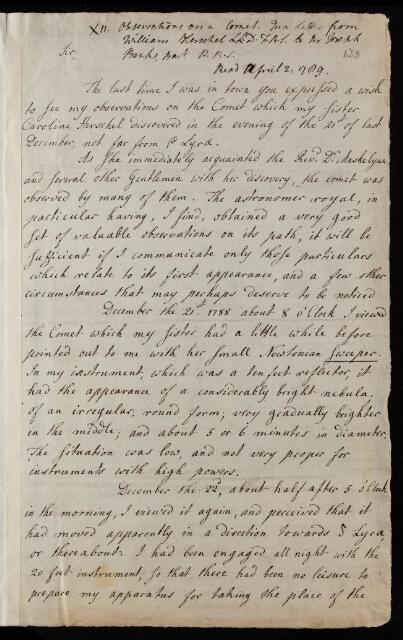 XII. Observations on a Comet. In a Letter from
William Herschel LL.D. F.R.S. to Sir Joseph
Banks, Bart. P.R.S.
123
Sir,
Read April 2, 1789.
The last time I was in town you expressed a wish
to see my observations on the Comet which my sister
Caroline Herschel discovered in the evening of the 21st of last
December, not far from β Lyræ.
As she immediately acquainted the Revd. Dr. Maskelyne
and several other Gentlemen with her discovery, the comet was
observed by many of them. The astronomer royal, in
particular having, I find, obtained a very good
set of valuable observations on its path, it will be
sufficient if I communicate only those particulars
which relate to its first appearance, and a few other
circumstances that may perhaps deserve to be noticed
December the 21st. 1788 about 8 o'Clock I viewed
the Comet which my sister had a little while before
pointed out to me with her small Newtonian Sweeper.
In my instrument, which was a ten feet reflector, it
had the appearance of a considerably bright nebula,
of an irregular, round form; very gradually brighter
in the middle; and about 5 or 6 minutes in diameter.
The situation was low, and not very proper for
instruments with high powers.
December the 22d, about half after 5 o'Clock
in the morning, I viewed it again, and perceived that it
had moved apparently in a direction towards δ Lyræ,
or thereabout. I had been engaged all night with the
20 feet instrument, so that there had been no leisure to
prepare my apparatus for taking the place of the